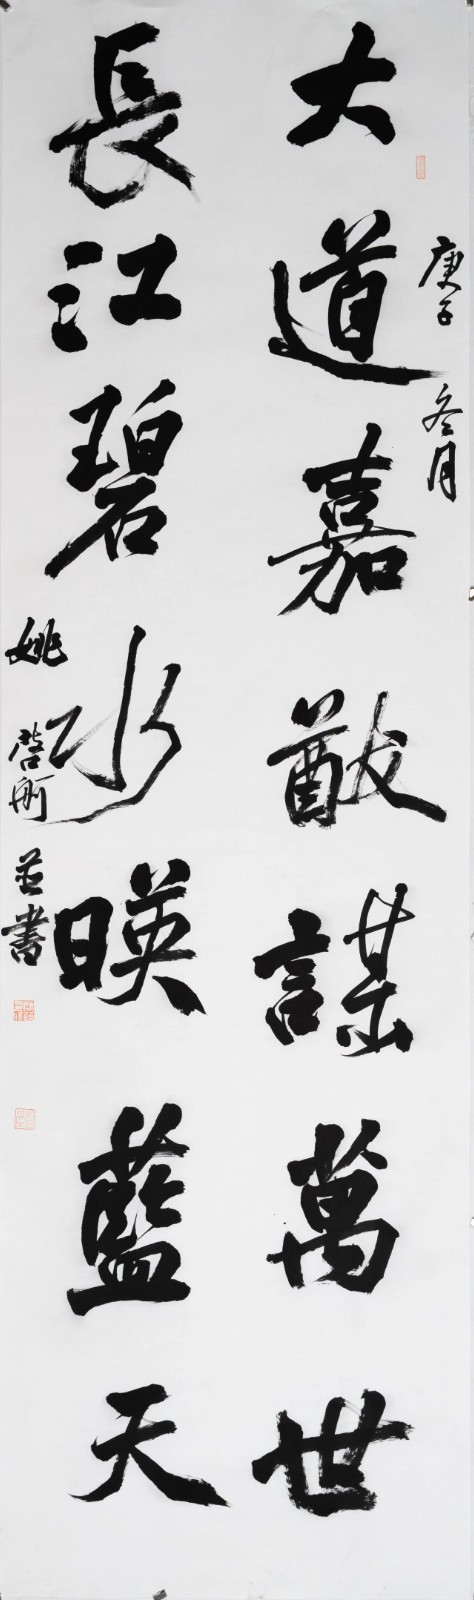 庚子 冬月
大道嘉猷謀萬世
長江碧水暎藍天
姚啓所並書